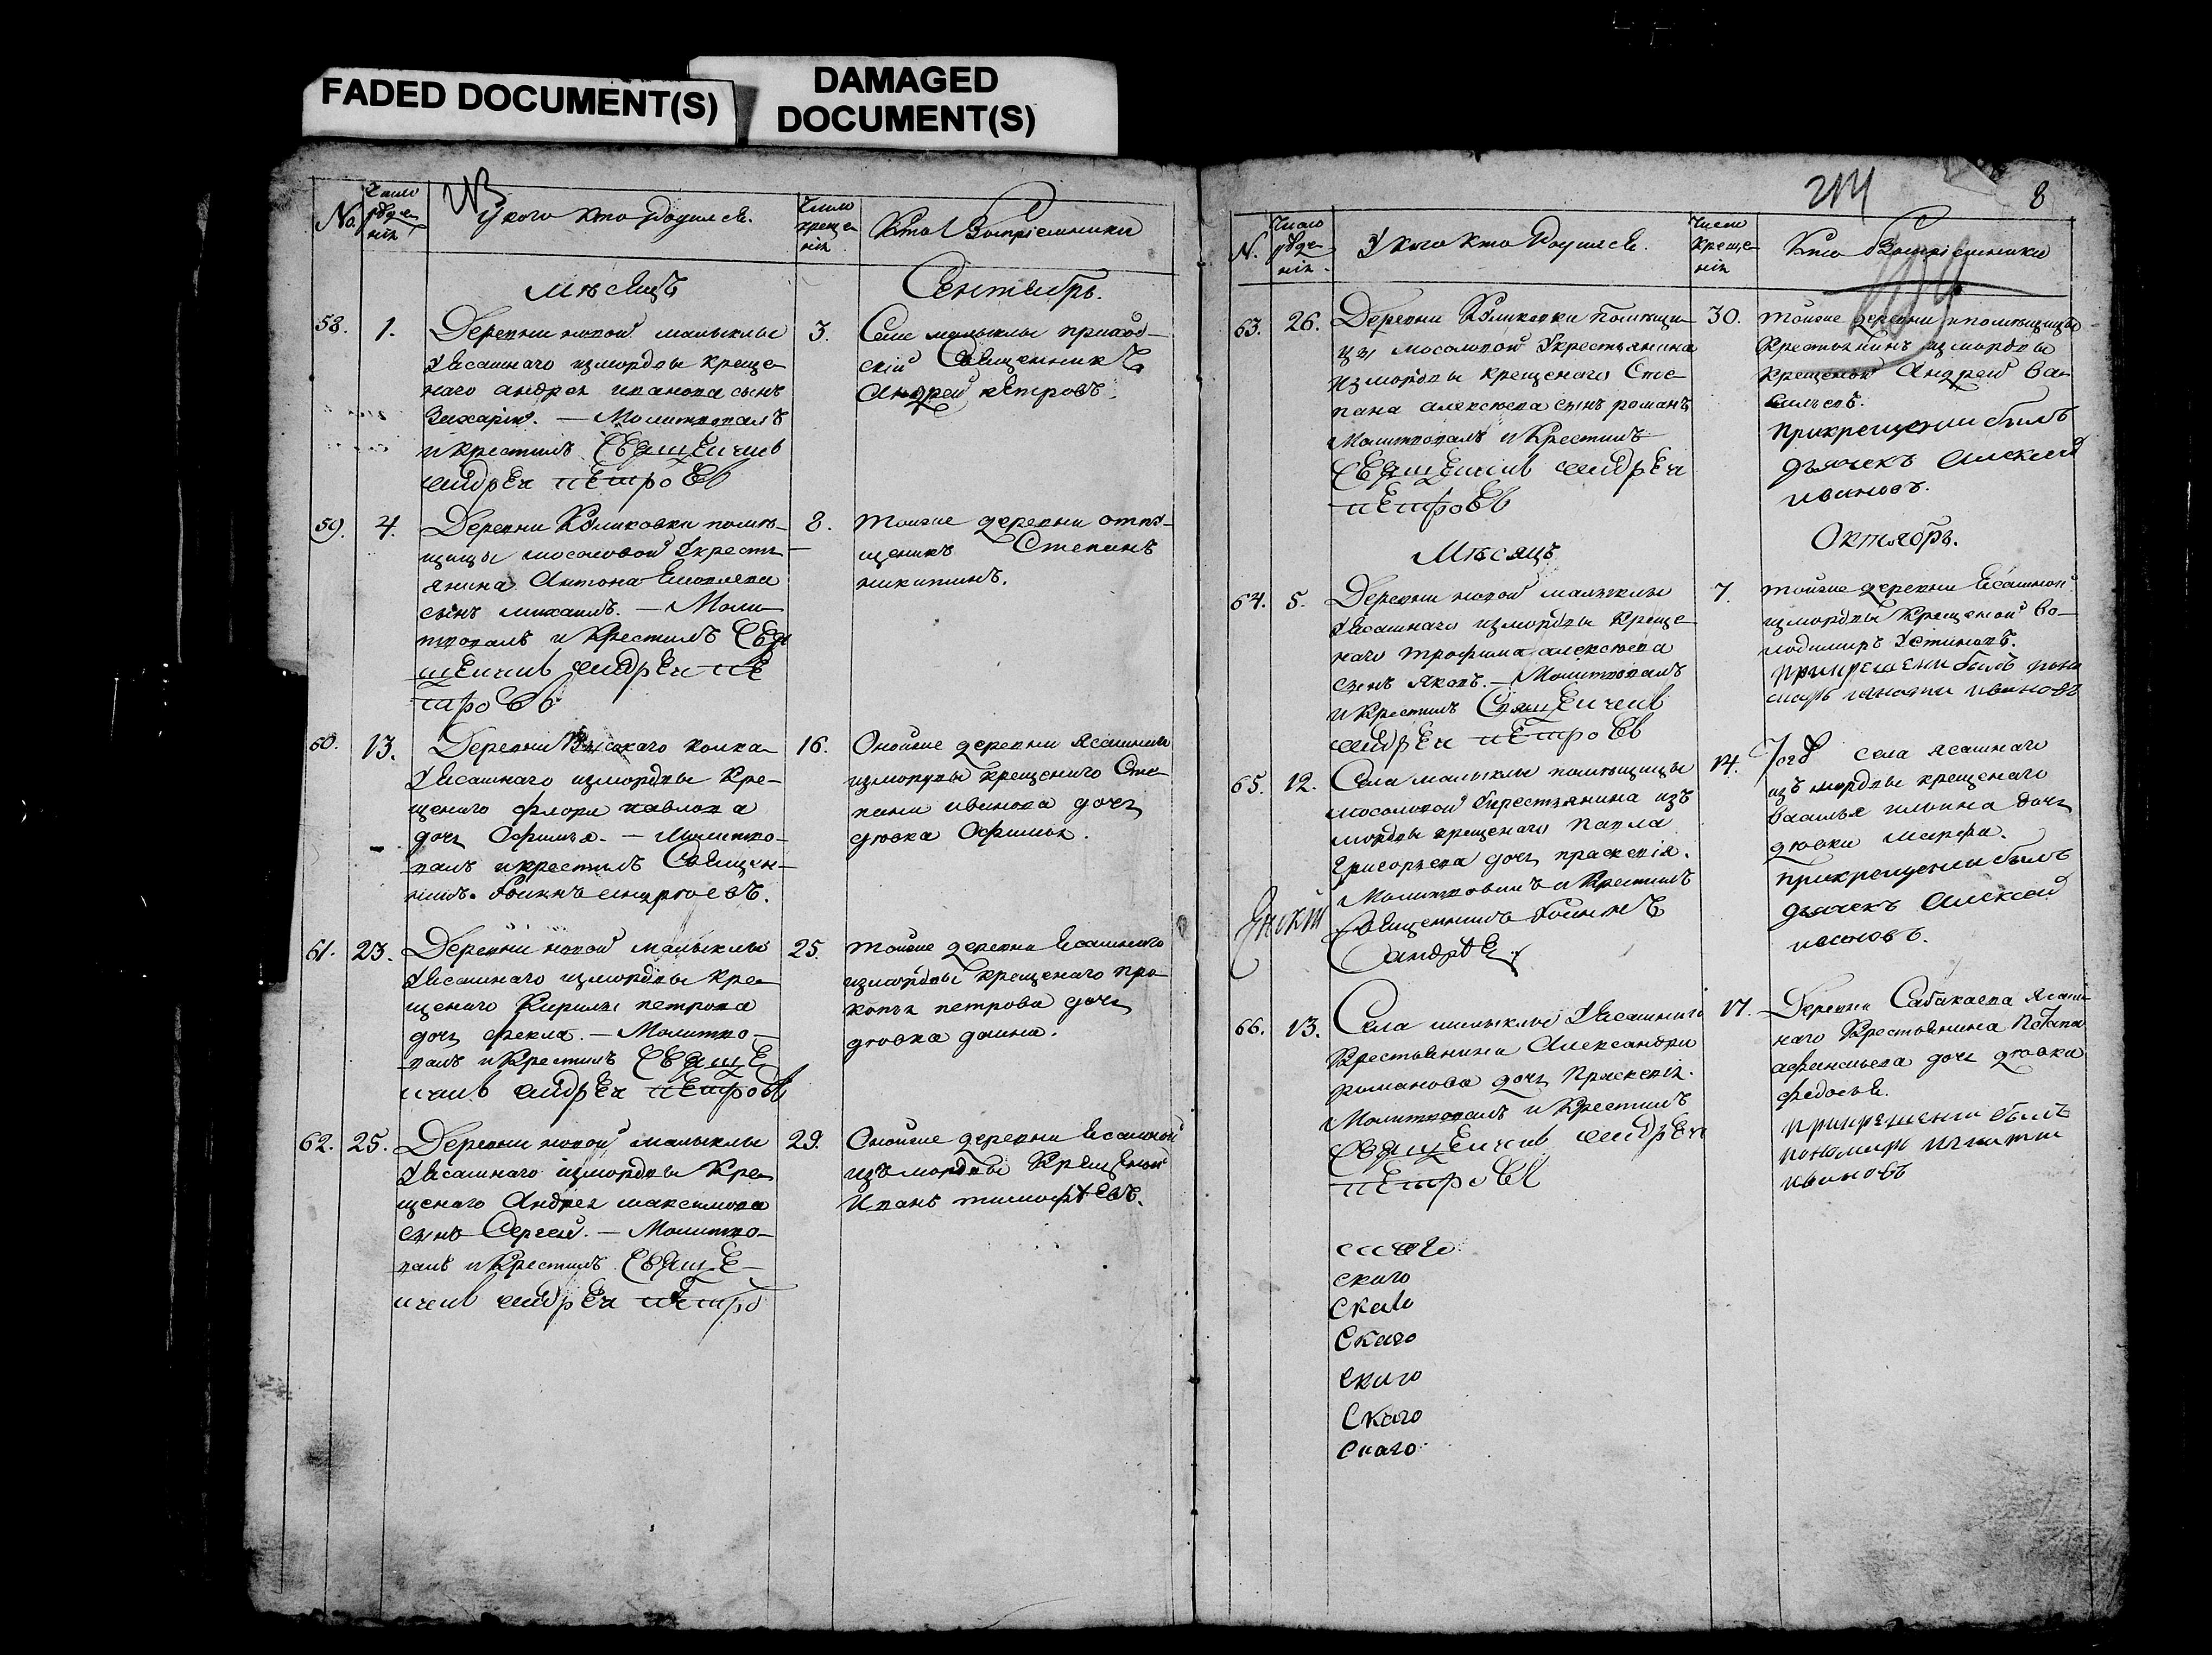 FADED DOCUMENT(S)
DAMAGED
DOCUMENT(S)
No.
Число
рожде
нія
У кого кто родился.
Число
креще
нія
Кто Воспріемники
Мѣсяцъ
Сентябрь.
58.
1.
Деревни новой малыклы
у Ясашнаго измордвы креще-
наго андрея иванова сынъ
Захарій. — Молитвовалъ
и крестилъ Священник
андрей петров
3.
Села малыклы приход-
скій Священникъ
Андрей петровъ.
59.
4.
Деревни Куликовки помѣ-
щицы мосоловой у кресть-
янина Антона
сынъ михаилъ. — Моли-
твовалъ и Крестилъ Свя
щенник андрей пе
тров
8.
тойже деревни отпу-
щеникъ Степанъ
никитинъ.
60.
13.
Деревни Высокаго колка
у Ясашнаго измордвы Кре-
щенаго флора павлова
дочь Офимья. — Молитво-
валъ и крестилъ Священ-
никъ Иоаннъ андреевъ.
16.
Онойже деревни ясашнаго
измордвы крещенаго Сте-
пана иванова дочь
девка Офимья.
61.
23.
Деревни новой малыклы
у Ясашнаго измордвы Кре-
щенаго Кирилы петрова
дочь фекла. — Молитво-
валъ и Крестилъ Священ
ник андрей петров
25.
тойже деревни Ясашнаго
измордвы крещенаго про-
копья петрова дочь
девка
62.
25.
Деревни новой малыклы
у Ясашнаго измордвы Кре-
щенаго Андрея максимова
сынъ Сергей. — Молитво-
валъ и Крестилъ Свяще-
ник андрей петро
29.
Онойже деревни Ясашной
изъ мордвы Крещеной
Иванъ тимофѣевъ.
8
N.
Число
рожде
нія.
У кого кто Родился.
Число
Креще-
нія
Кто Воспріемники
63.
26.
Деревни Куликовки помѣщи-
цы мосоловой у крестьянина
измордвы крещенаго Сте-
пана алексѣева сынъ романъ
Молитвовалъ и Крестилъ
Священник андрей
петров
30.
тойже деревни помѣщицы
Крестьянинъ измордвы
Крещеной Андрей Ва-
сильевъ.
При крещении былъ
дьячекъ Алексей
ивановъ.
Мѣсяцъ
Октябрь.
64.
5.
Деревни новой малыклы
у Ясашнаго измордвы Креще-
наго трофима алексѣева
сынъ яковъ. — Молитвовалъ
и Крестилъ Священник
андрей петров
7.
тойже деревни Ясашной
измордвы Крещеной во-
лодимиръ Устиновъ.
При крещении былъ поно
марь игнатий ивановъ
65.
12.
Села малыклы помѣщицы
мосоловой у крестьянина изъ
мордвы крещенаго павла
Григорьева дочь праскевія.
Молитвовалъ и Крестилъ
Священникъ Иоаннъ
андрѣе
14.
Тогож села ясашнаго
изъ мордвы крещенаго
василья ильина дочь
девка марфа.
При крещении былъ
дьячекъ Алексей
ивановъ.
66.
13.
Села малыклы у Ясашнаго
Крестьянина Александра
романова дочь Праскевія.
Молитвовалъ и Крестилъ
Священник андрей
петров
17.
Деревни Сабакаева Ясаш-
наго Крестьянина потапа
афанасьева дочь девка
федосья.
При крещении былъ
пономарь игнатий
ивановъ
скаго
скаго
Скаго
скаго
Скаго
скаго